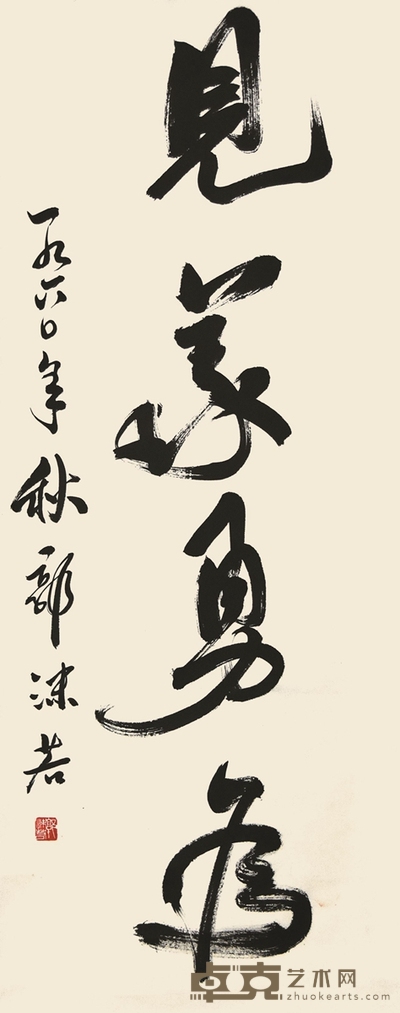 見義勇為
一九六〇年秋郭沫若
卓克艺术网
zhuokearts.com